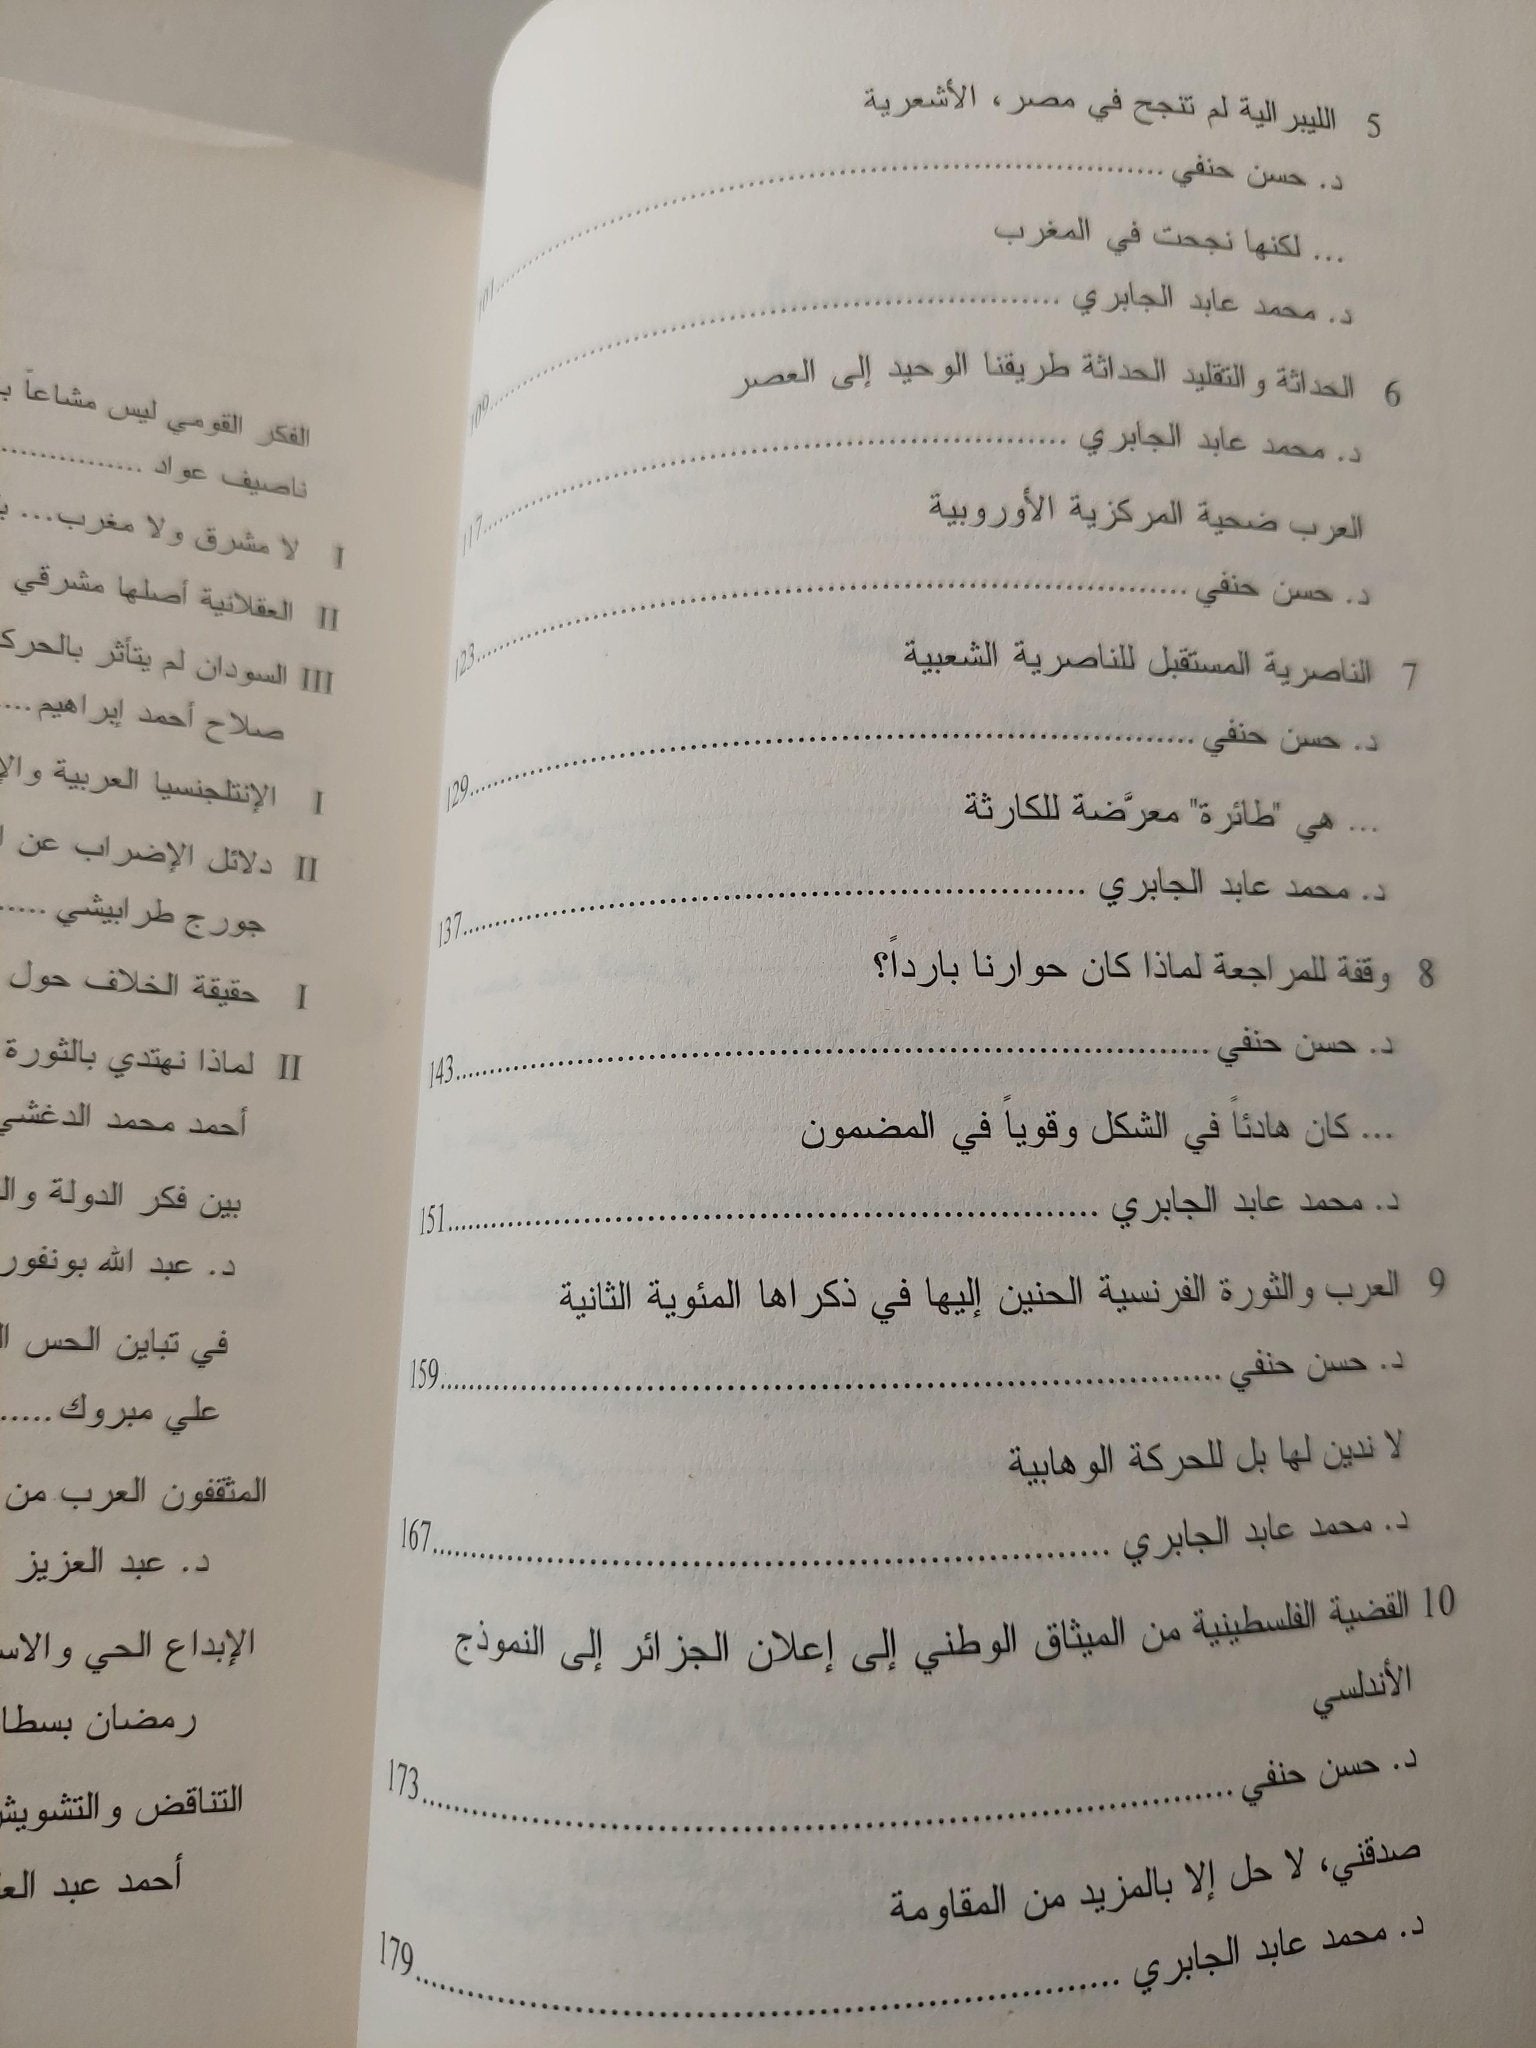 5 الليبرالية لم تنجح في مصر، الأشعرية
د. حسن حنفي ........ 101
... لكنها نجحت في المغرب
د. محمد عابد الجابري ........ 109
6 الحداثة والتقليد الحداثة طريقنا الوحيد إلى العصر
د. محمد عابد الجابري ........ 117
العرب ضحية المركزية الأوروبية
د. حسن حنفي ........ 123
7 الناصرية المستقبل للناصرية الشعبية
د. حسن حنفي ........ 129
... هي "طائرة" معرَّضة للكارثة
د. محمد عابد الجابري ........ 137
8 وقفة للمراجعة لماذا كان حوارنا بارداً؟
د. حسن حنفي ........ 143
... كان هادئاً في الشكل وقوياً في المضمون
د. محمد عابد الجابري ........ 151
9 العرب والثورة الفرنسية الحنين إليها في ذكراها المئوية الثانية
د. حسن حنفي ........ 159
لا ندين لها بل للحركة الوهابية
د. محمد عابد الجابري ........ 167
10 القضية الفلسطينية من الميثاق الوطني إلى إعلان الجزائر إلى النموذج
الأندلسي
د. حسن حنفي ........ 173
صدقني، لا حل إلا بالمزيد من المقاومة
د. محمد عابد الجابري ........ 179
الفكر القومي ليس مشاعاً
ناصيف عواد ........
I لا مشرق ولا مغرب...
II العقلانية أصلها مشرقي
III السودان لم يتأثر
صلاح أحمد إبراهيم ....
I الإنتلجنسيا العربية
II دلائل الإضراب عن
جورج طرابيشي .....
I حقيقة الخلاف حول
II لماذا نهتدي بالثورة
أحمد محمد الدغشي
بين فكر الدولة
د. عبد الله بونفور
في تباين الحس
علي مبروك.....
المثقفون العرب من
د. عبد العزيز
الإبداع الحي
رمضان
التناقض
أحمد عبد